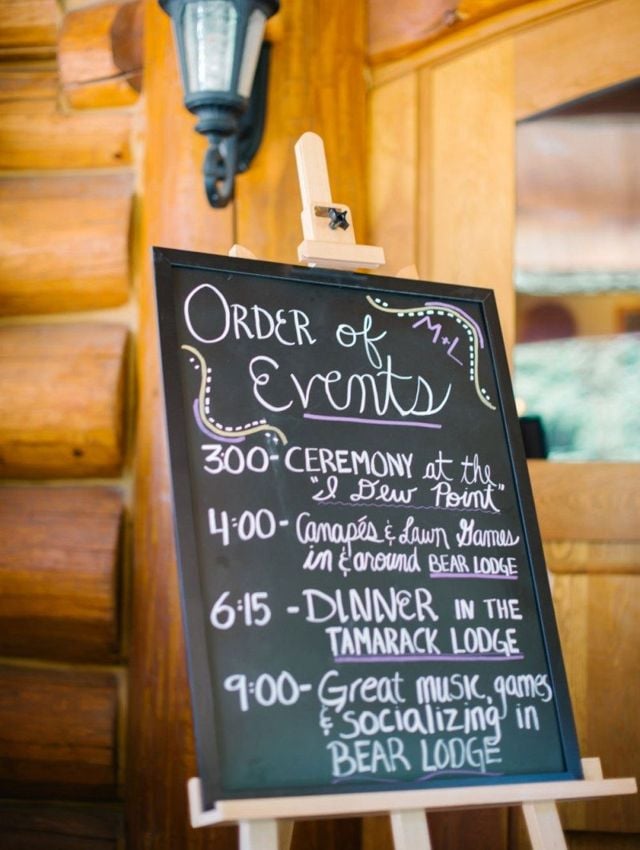 ORDER of
Events
M+L
3:00-CEREMONY at the
"I Dew Point"
4:00- Canapés & Lawn Games
in & around BEAR LODGE
6:15 -DINNER IN THE
TAMARACK LODGE
9:00-Great music, games
& socializing in
BEAR LODGE